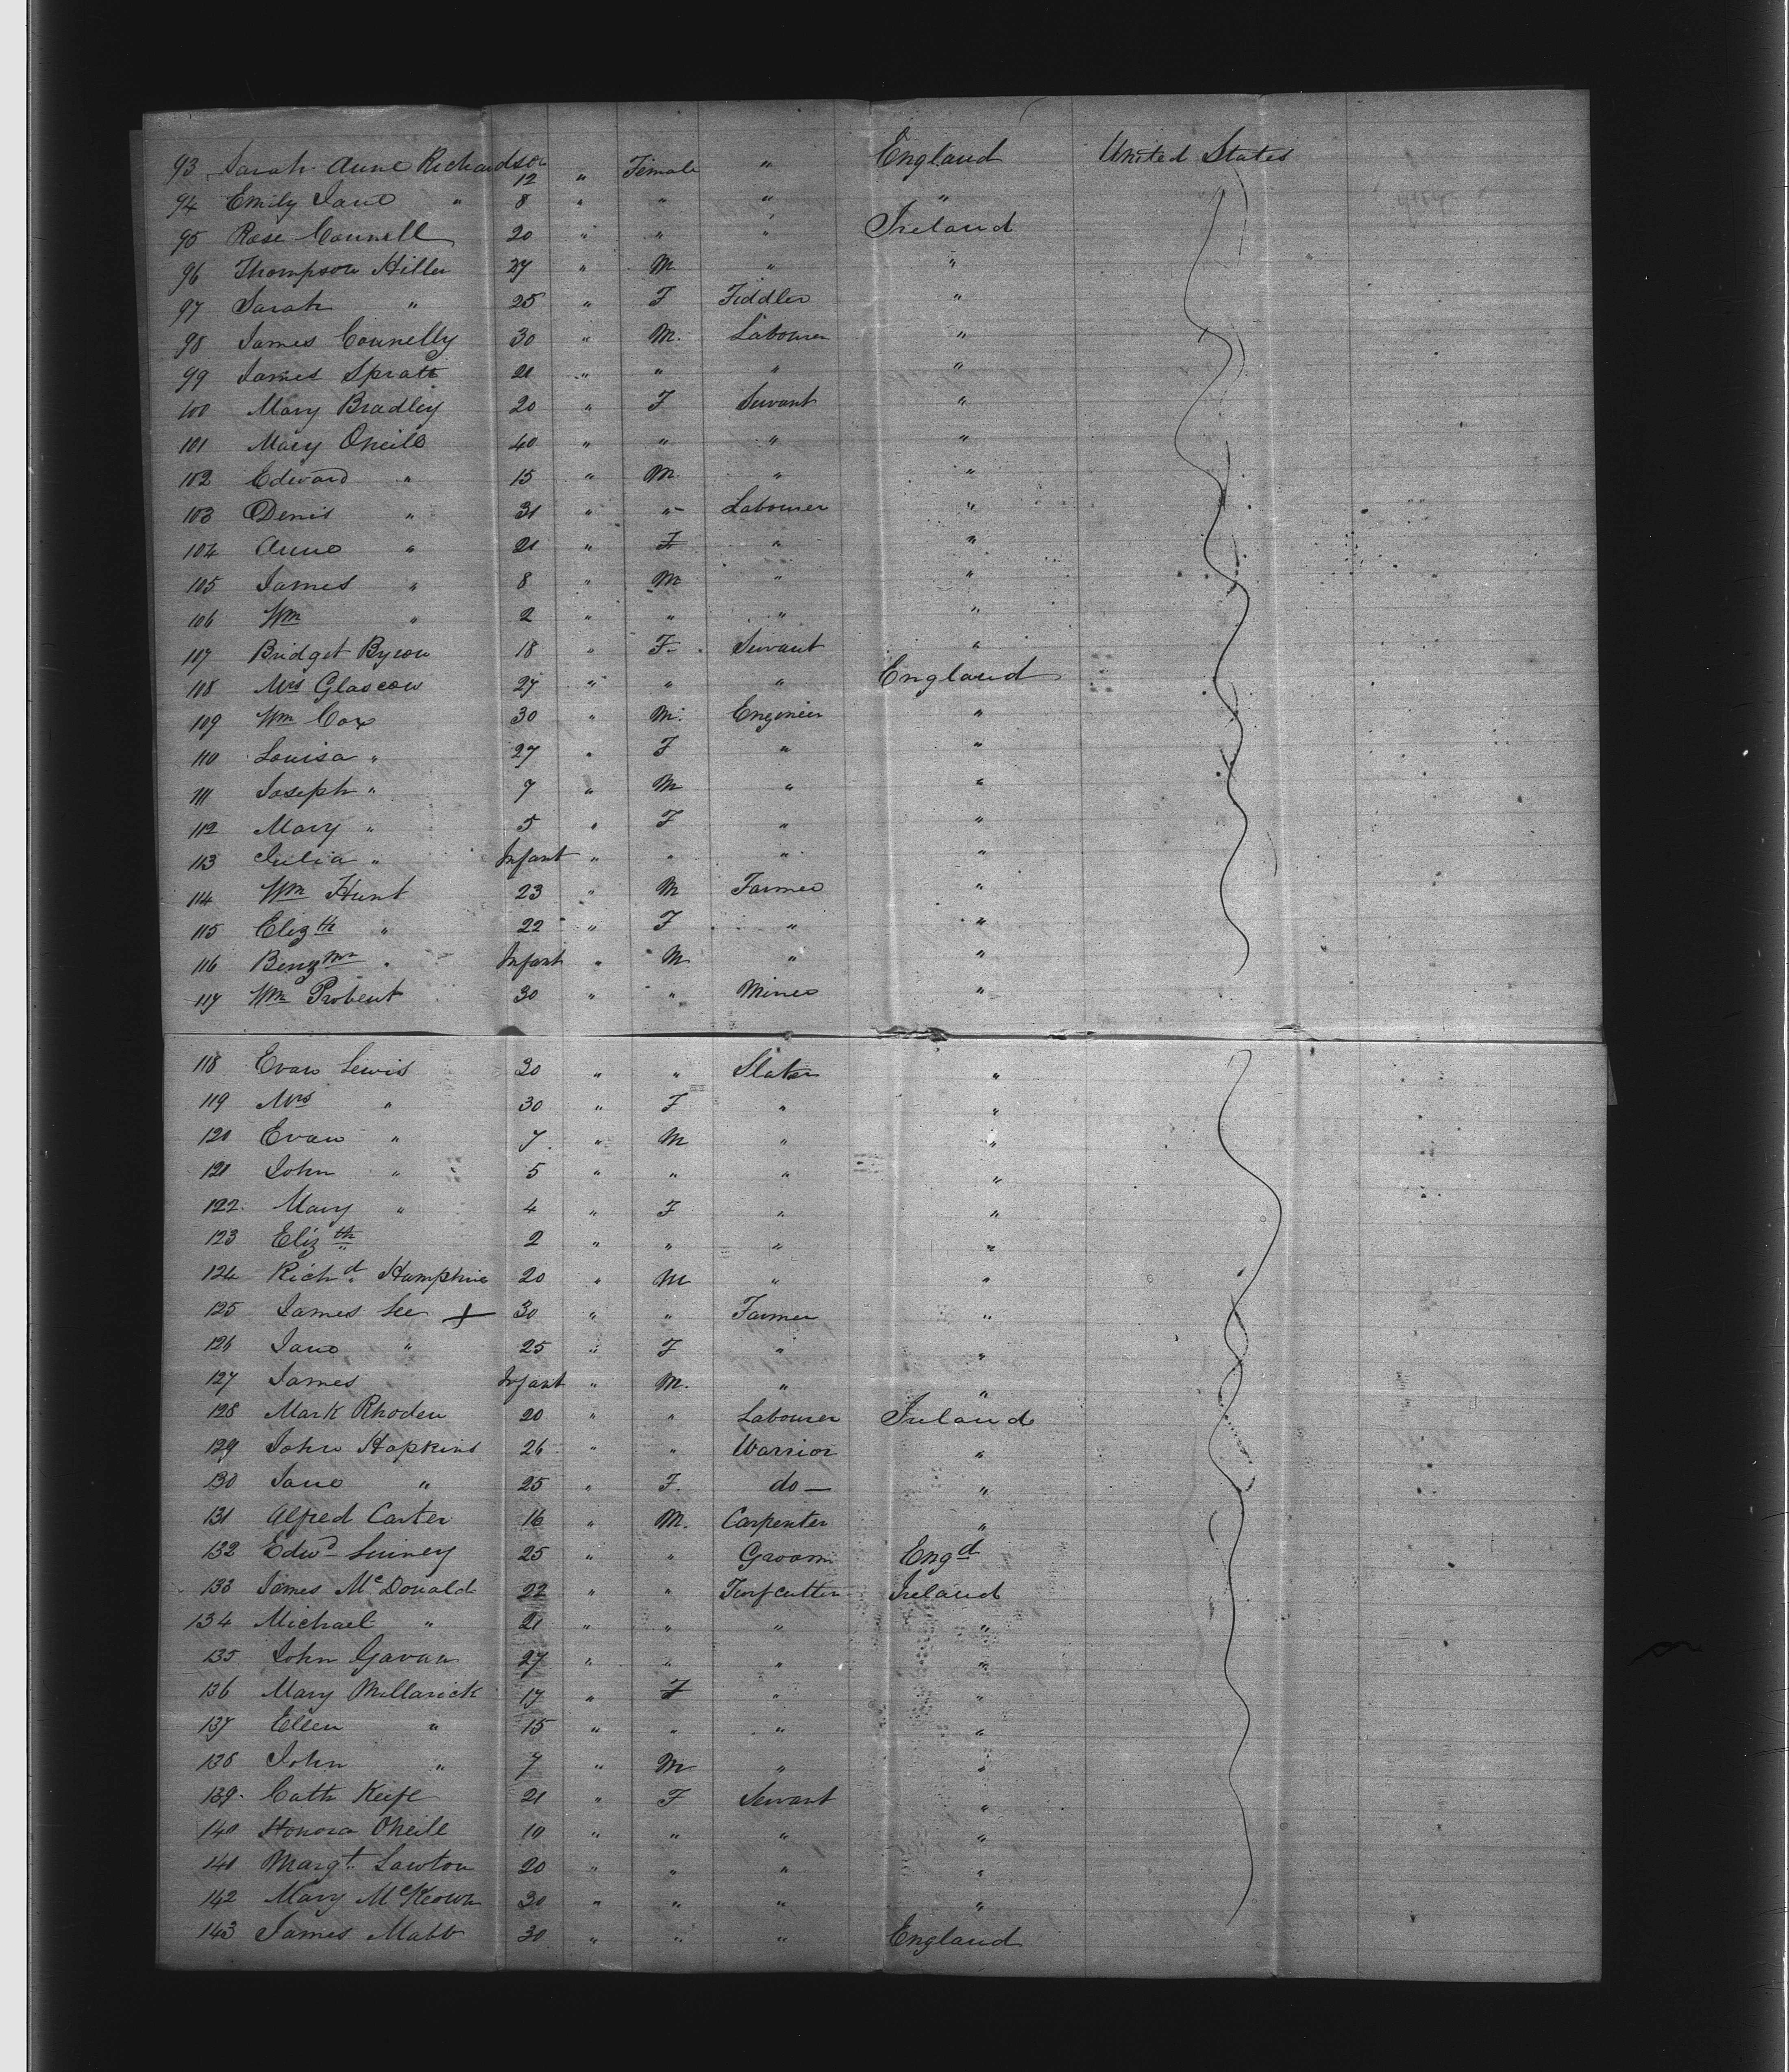 93 Sarah Anne Richardson 12 " Female " England United States
94 Emily Jane " 8 " " " "
95 Rose Connell 20 " " " Ireland
96 Thompson Hiller 27 " M " "
97 Sarah " 25 " F Fiddler "
98 James Connelly 30 " M. Labourer "
99 James Spratt 21 " " " "
100 Mary Bradley 20 " F Servant "
101 Mary Oneill 40 " " " "
102 Edward " 15 " M " "
103 Denis " 31 " " Labourer "
104 Anne " 21 " F " "
105 James " 8 " M " "
106 Wm " 2 " " " "
107 Bridget Byron 18 " F Servant "
108 Mrs Glascow 27 " " " England
109 Wm Cox 30 " M. Engineer "
110 Louisa " 27 " F " "
111 Joseph " 7 " M " "
112 Mary " 5 " F " "
113 Julia " Infant " " " "
114 Wm Hunt 23 " M Farmer "
115 Elizth " 22 " F " "
116 Benjmn " Infant " M " "
117 Wm Probert 30 " " Miner "
118 Evan Lewis 30 " " Slater "
119 Mrs " 30 " F " "
120 Evan " 7 " M " "
121 John " 5 " " " "
122. Mary " 4 " F " "
123 Elizth " 2 " " " "
124 Richd. Humphrie 20 " M " "
125 James Lee + 30 " " Farmer "
126 Jane " 25 " F " "
127 James Infant " M. " "
128 Mark Rhoden 20 " " Labourer Ireland
129 John Hopkins 26 " " Warrior "
130 Jane " 25 " F. do — "
131 Alfred Carter 16 " M. Carpenter "
132 Edwd 25 " " Groom Engd
133 James McDonald 22 " " Turfcutter Ireland
134 Michael " 21 " " " "
135 John Gavan 27 " " " "
136 Mary Mullarick 17 " F " "
137 Ellen " 15 " " " "
138 John " 7 " M " "
139. Cath Keefe 21 " F Servant "
140 Honora Oneill 19 " " " "
141 Margt. Lawton 20 " " " "
142 Mary McKeown 30 " " " "
143 James Mabb 30 " " " England